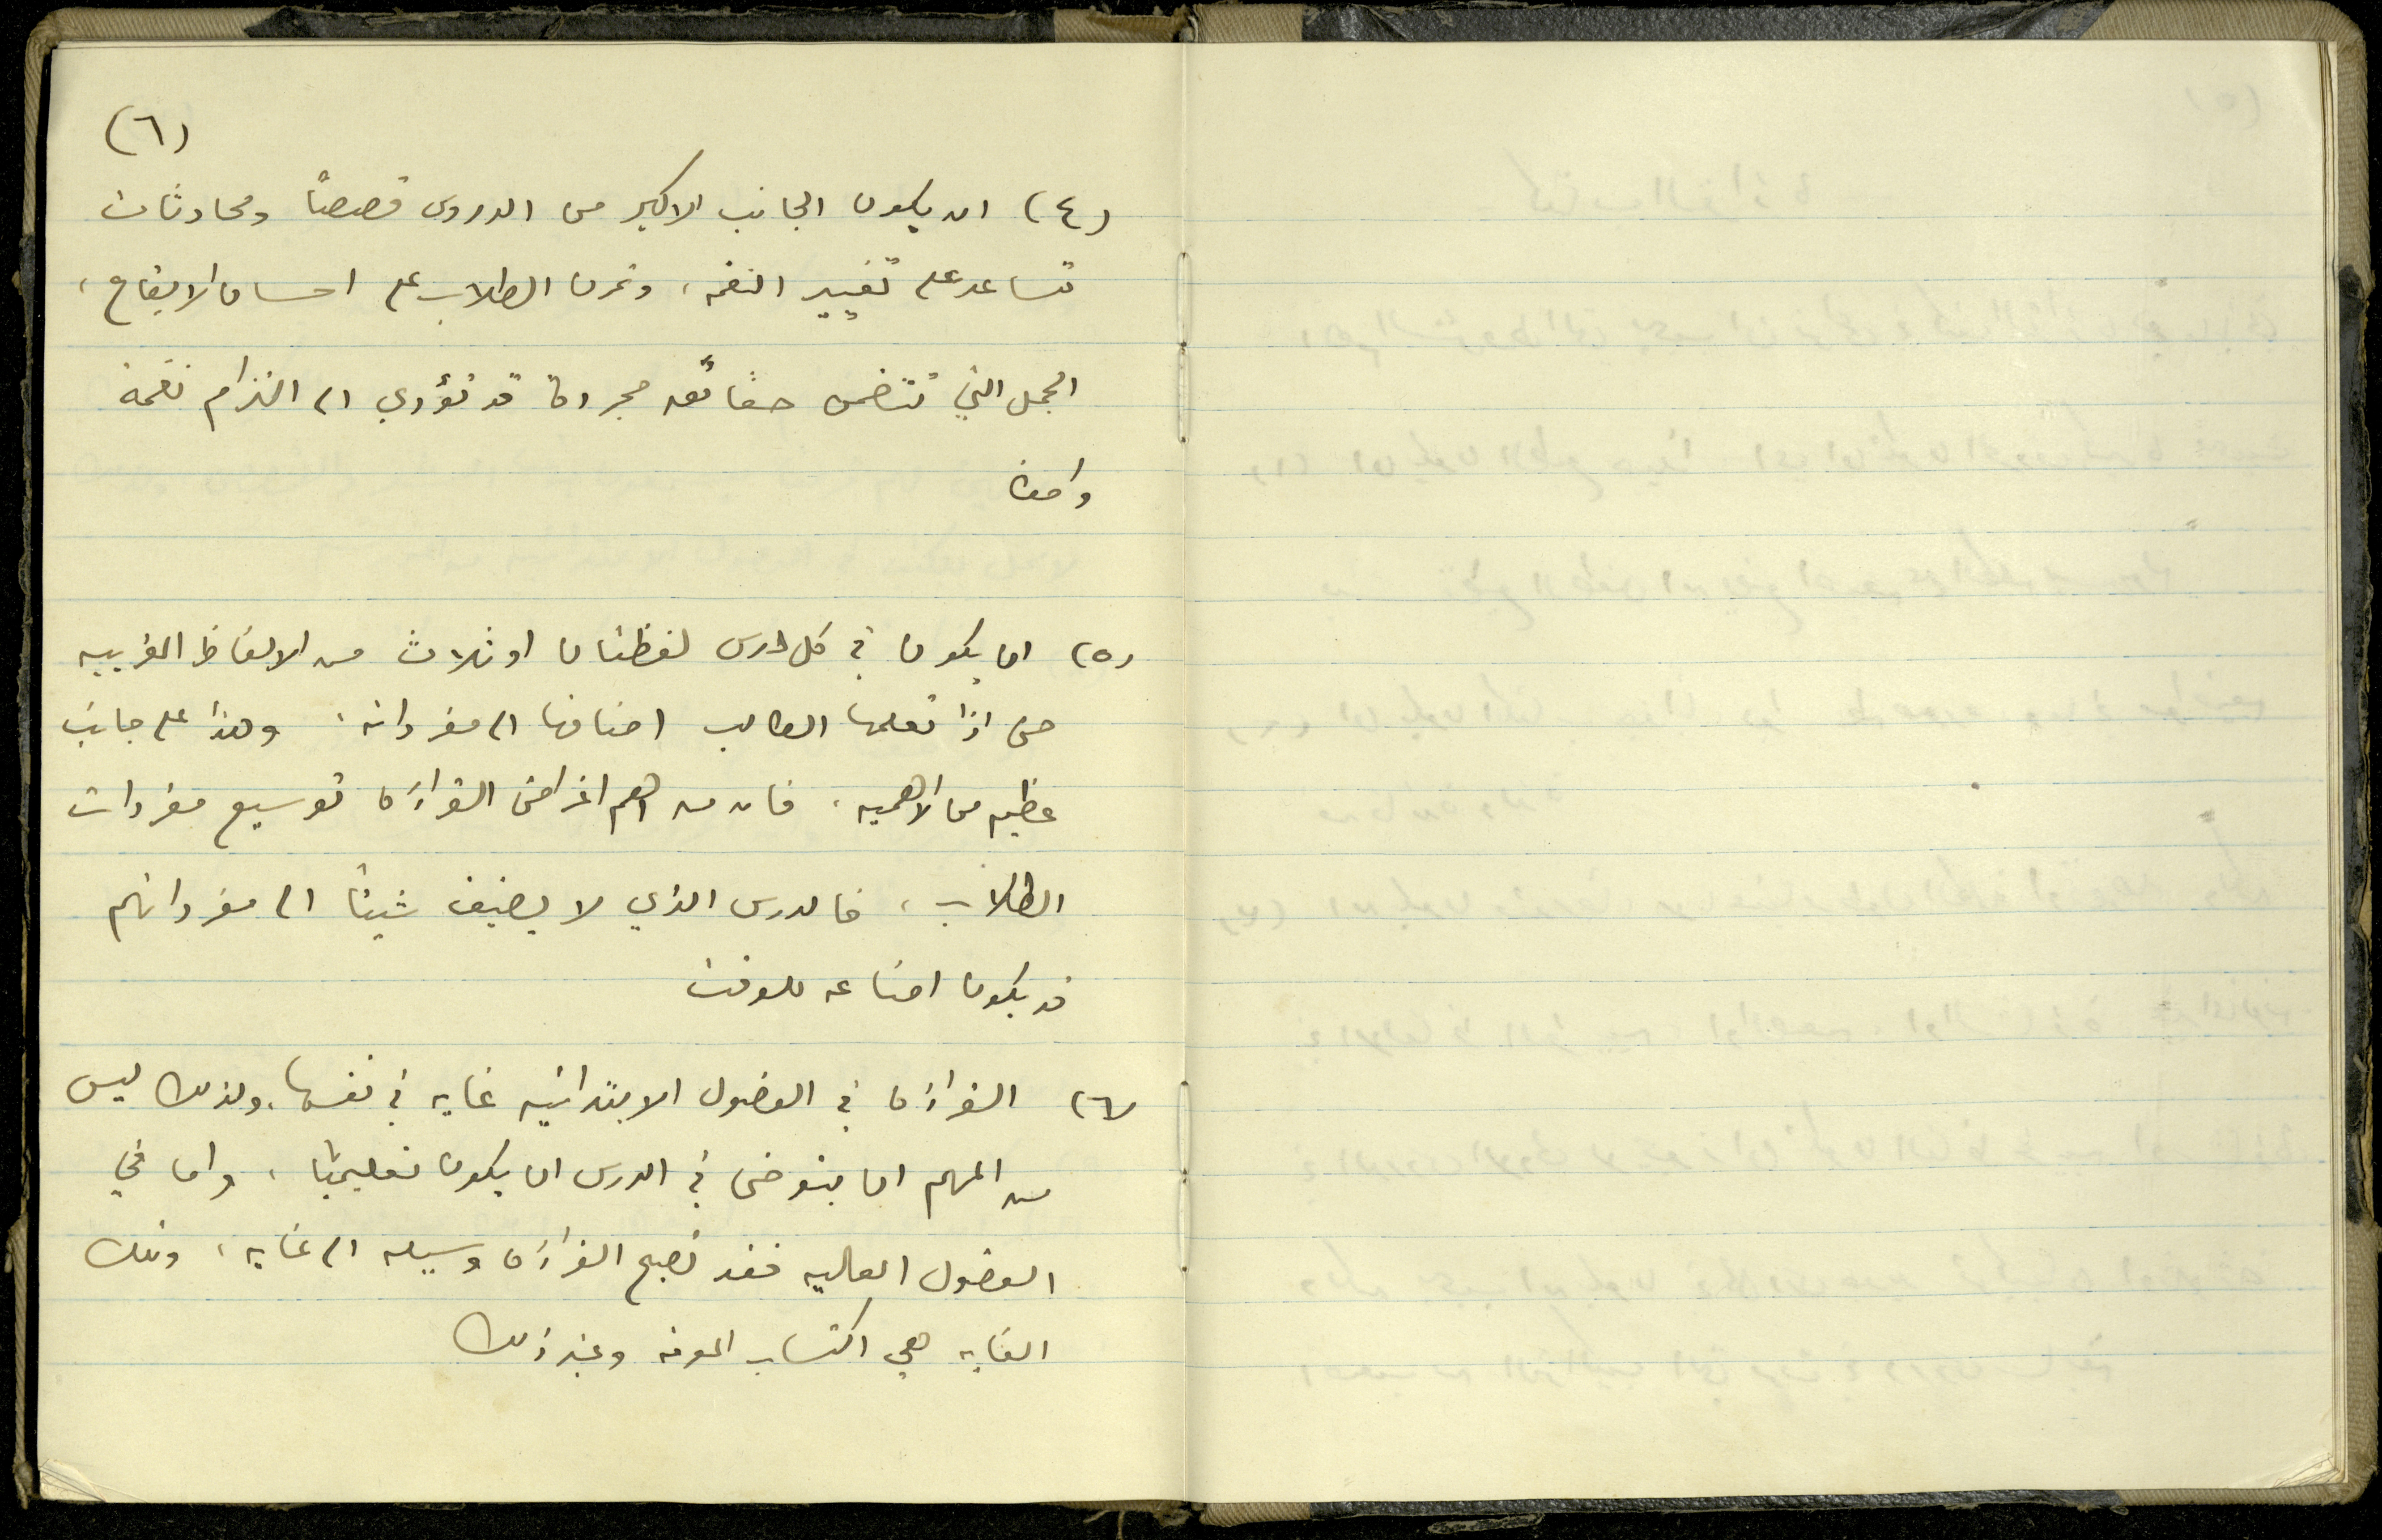 (٦)
(٤) ان يكون الجانب الاكبر من الدروس قصصًا ومحادثات
تساعد على تغيير النغمه، وتمرن الطلاب على احسان الايقاع،
الجمل التي تتضمن حقائق مجردة قد تؤدي الى التزام نغمة
واحدة
(٥) ان يكون في كل درس لفظتان او ثلاث من الالفاظ الغريبه
حتى اذا تعلمها الطالب اضافها الى مفرداته. وهذا على جانب
عظيم من الاهميه، فان من اهم اغراض القراءة توسيع مفردات
الطلاب، فالدرس الذي لا يضيف شيئًا الى مفرداتهم
قد يكون اضاعه للوقت
(٦) القراءة في الفصول الابتدائيه غايه في نفسها. ولذلك ليس
من المهم ان يتوخى في الدرس ان يكون تعليميًا، واما في
الفصول العاليه فقد تصبح القراءة وسيله الى غايه، وتلك
الغايه هي اكتساب المعرفه وغير ذلك